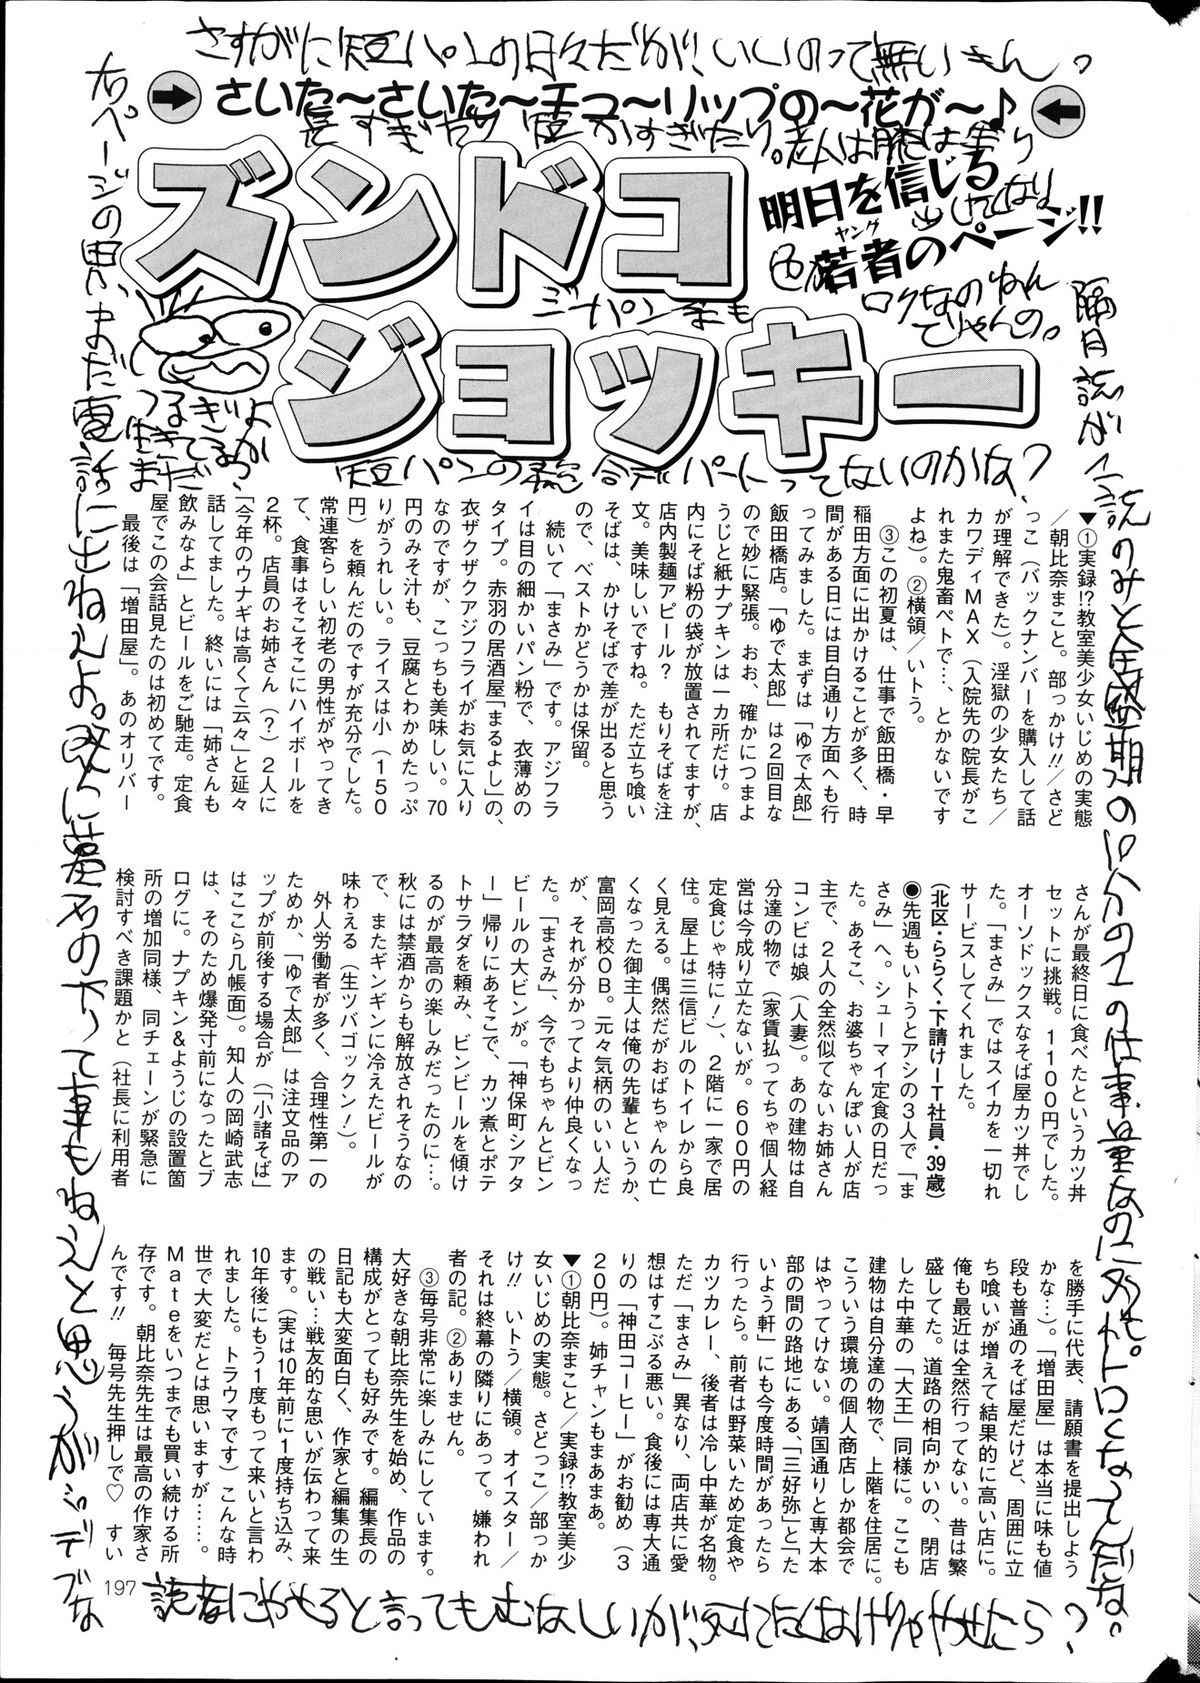 さすがに短パンの日々だが、いいのって無いもん。
さいた〜さいた〜チュ〜リップの〜花が〜♪
長すぎたり短かすぎたり。
ズンドコ
ジョッキー
明日を信じる
若者のページ!!
ヤング
ロクなのねん
でやんの。
ジーパン
まだ
生きてるか?
短パンの 総合デパートってないのかな?
▼①実録!?教室美少女いじめの実態
/朝比奈まこと。部っかけ!!/さど
っこ(バックナンバーを購入して話
が理解できた)。淫獄の少女たち/
カワディMAX(入院先の院長がこ
れまた鬼畜ペトで…、とかないです
よね)。②横領/いトう。
③この初夏は、仕事で飯田橋・早
稲田方面に出かけることが多く、時
間がある日には目白通り方面へも行
ってみました。まずは「ゆで太郎」
飯田橋店。「ゆで太郎」は2回目な
ので妙に緊張。おお、確かにつまよ
うじと紙ナプキンは一カ所だけ。店
内にそば粉の袋が放置されてますが、
店内製麺アピール? もりそばを注
文。美味しいですね。ただ立ち喰い
そばは、かけそばで差が出ると思う
ので、ベストかどうかは保留。
続いて「まさみ」です。アジフラ
イは目の細かいパン粉で、衣薄めの
タイプ。赤羽の居酒屋「まるよし」の、
衣ザクザクアジフライがお気に入り
なのですが、こっちも美味しい。70
円のみそ汁も、豆腐とわかめたっぷ
りがうれしい。ライスは小(150
円)を頼んだのですが充分でした。
常連客らしい初老の男性がやってき
て、食事はそこそこにハイボールを
2杯。店員のお姉さん(?)2人に
「今年のウナギは高くて云々」と延々
話してました。終いには「姉さんも
飲みなよ」とビールをご馳走。定食
屋でこの会話見たのは初めてです。
最後は「増田屋」。あのオリバー
さんが最終日に食べたというカツ丼
セットに挑戦。1100円でした。
オーソドックスなそば屋カツ丼でし
た。「まさみ」ではスイカを一切れ
サービスしてくれました。
(北区・ららく・下請けIT社員・39歳)
●先週もいトうとアシの3人で「ま
さみ」へ。シューマイ定食の日だっ
た。あそこ、お婆ちゃんぽい人が店
主で、2人の全然似てないお姉さん
コンビは娘(人妻)。あの建物は自
分達の物で(家賃払ってちゃ個人経
営は今成り立たないが。600円の
定食じゃ特に!)、2階に一家で居
住。屋上は三信ビルのトイレから良
く見える。偶然だがおばちゃんの亡
くなった御主人は俺の先輩というか、
富岡高校OB。元々気柄のいい人だ
が、それが分かってより仲良くなっ
た。「まさみ」、今でもちゃんとビン
ビールの大ビンが。「神保町シアタ
ー」帰りにあそこで、カツ煮とポテ
トサラダを頼み、ビンビールを傾け
るのが最高の楽しみだったのに…。
秋には禁酒からも解放されそうなの
で、またギンギンに冷えたビールが
味わえる(生ツバゴックン!)。
外人労働者が多く、合理性第一の
ためか、「ゆで太郎」は注文品のア
ップが前後する場合が(「小諸そば」
はここら几帳面)。知人の岡崎武志
は、そのため爆発寸前になったとブ
ログに。ナプキン&ようじの設置箇
所の増加同様、同チェーンが緊急に
検討すべき課題かと(社長に利用者
を勝手に代表、請願書を提出しよう
かな…)。「増田屋」は本当に味も値
段も普通のそば屋だけど、周囲に立
ち喰いが増えて結果的に高い店に。
俺も最近は全然行ってない。昔は繁
盛してた。道路の相向かいの、閉店
した中華の「大王」同様に。ここも
建物は自分達の物で、上階を住居に。
こういう環境の個人商店しか都会で
はやってけない。靖国通りと専大本
部の間の路地にある、「三好弥」と「た
いよう軒」にも今度時間があったら
行ったら。前者は野菜いため定食や
カツカレー、後者は冷し中華が名物。
ただ「まさみ」異なり、両店共に愛
想はすこぶる悪い。食後には専大通
りの「神田コーヒー」がお勧め(3
20円)。姉チャンもまあまあ。
▼①朝比奈まこと/実録!?教室美少
女いじめの実態。さどっこ/部っか
け!! いトう/横領。オイスター/
それは終幕の隣りにあって。嫌われ
者の記。②ありません。
③毎号非常に楽しみにしています。
大好きな朝比奈先生を始め、作品の
構成がとっても好みです。編集長の
日記も大変面白く、作家と編集の生
の戦い…戦友的な思いが伝わって来
ます。(実は10年前に1度持ち込み、
10年後にもう1度もって来いと言わ
れました。トラウマです)こんな時
世で大変だとは思いますが……。
Mateをいつまでも買い続ける所
存です。朝比奈先生は最高の作家さ
んです!! 毎号先生押しで♡ すい
隔月誌が
右ページの男、まだ電話に出ねえよ。
197
読者にやせると言ってもむなしいが、死にたくなけりゃやせたら?